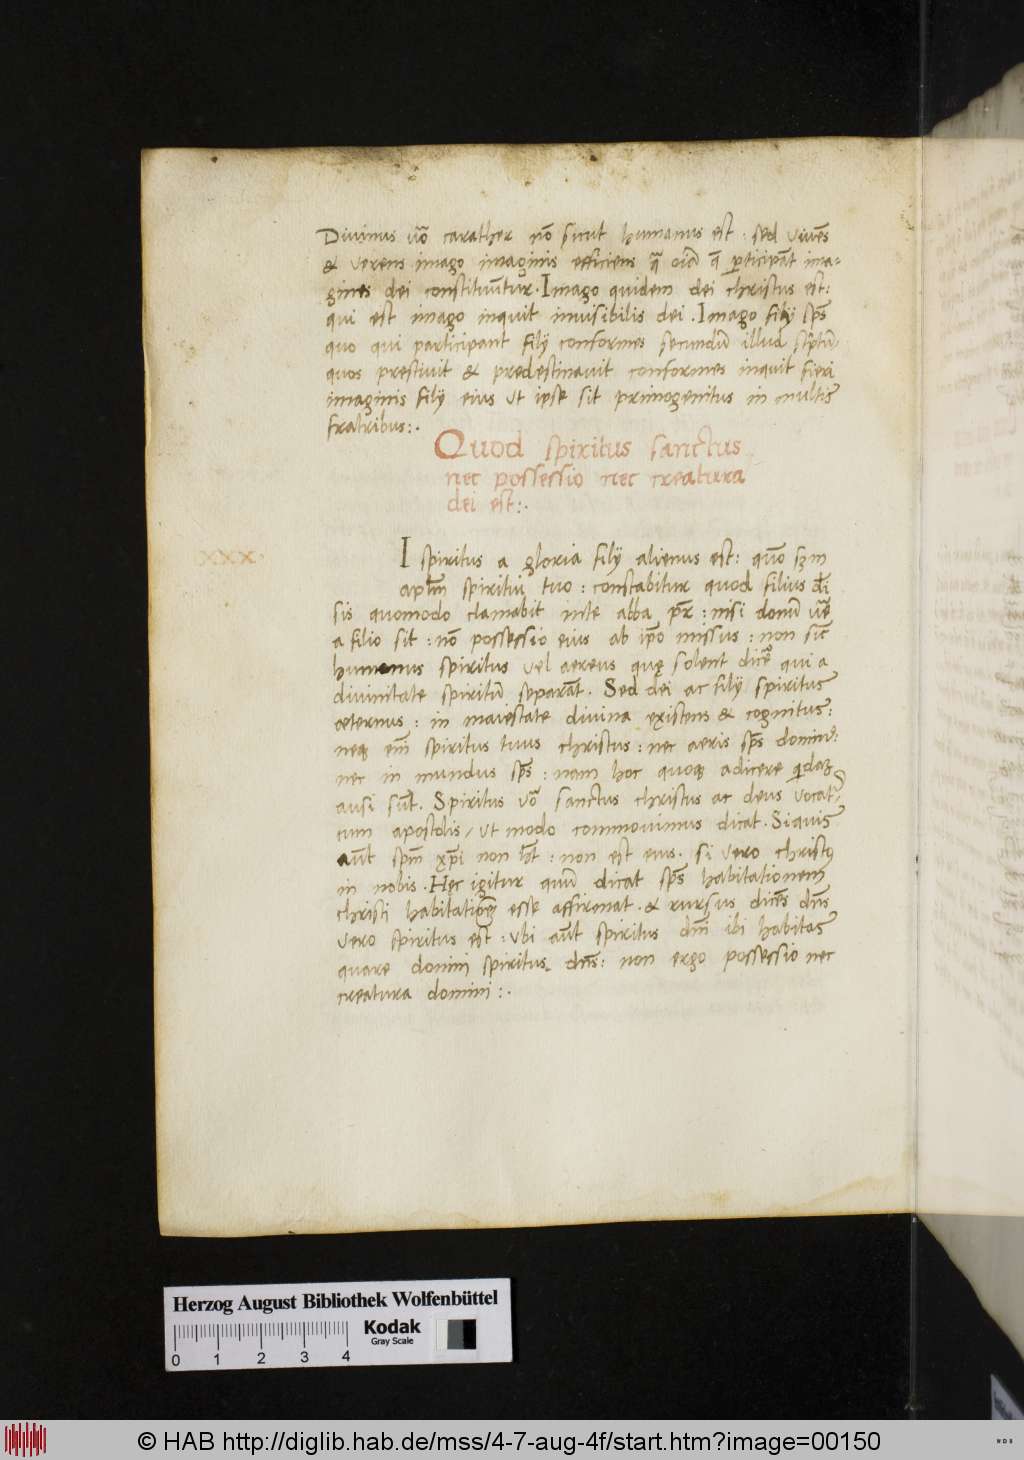 Divinus vō carather nō sicut humanus est : sed vivēs
& verens imago imaginis efficiens q̄ oīa q̄ participāt ima-
gines dei constituūtur. Imago quidem dei christus est:
qui est imago inquit invisibilis dei. Imago filij spūs
quo qui participant filij conformes secundū illud scriptū
quos prescivit & predestinavit conformes inquit fieri
imaginis filij eius vt ipse sit primogenitus in multis
fratribus:.
Quod spiritus sanctus
nec possessio nec creatura
dei est:.
XXX.
I spiritus a gloria filij alienus est: quō scdm
aplm̄ spiritui tuo : constabitur quod filius
sis quomodo clamabit in te abba pr̄ : nisi donū
a filio sit : nō possessio eius ab ipō missus : non sic̄
humanus spiritus vel aereus quę solent dicere qui a
divinitate spiritū separāt. Sed dei ac filij spiritus
aeternus : in maiestate divina existens & cognitus:
neq; em̄ spiritus tuus christus : nec aeris spūs dominus:
nec in mundus spūs : nam hoc quoq; adicere quidam
ausi sūt. Spiritus vō sanctus christus ac deus vocat
cum apostolis / vt modo commovimus dicat. Siquis
aūt spm̄ xp̄i non h̄t : non est eius. si vero christus
in nobis. Hęc igitur quū dicat spūs habitationem
christi habitationē esse affirmat. & rursus dicēs dn̄s
vero spiritus est : vbi aūt spiritus dn̄i ibi habitas
quare domini spiritus dn̄s: non ergo possessio nec
creatura domini:.
Herzog August Bibliothek Wolfenbüttel
Kodak
Gray Scale
0 1 2 3 4
© HAB http://diglib.hab.de/mss/4-7-aug-4f/start.htm?image=00150